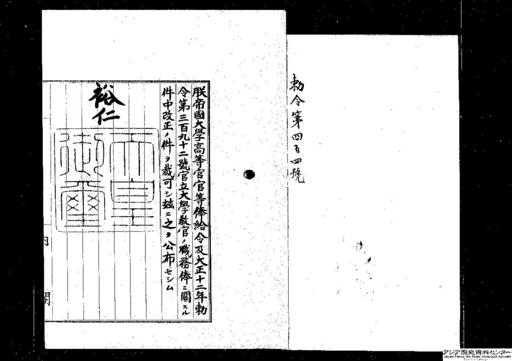 勅令第四百四號
朕帝國大學高等官官等俸給令及大正十二年勅
令第三百九十二號官立大學教官ノ職務俸ニ關スル
件中改正ノ件ヲ裁可シ玆ニ之ヲ公布セシム
裕仁
天皇
御璽
内
閣
アジア歴史資料センター